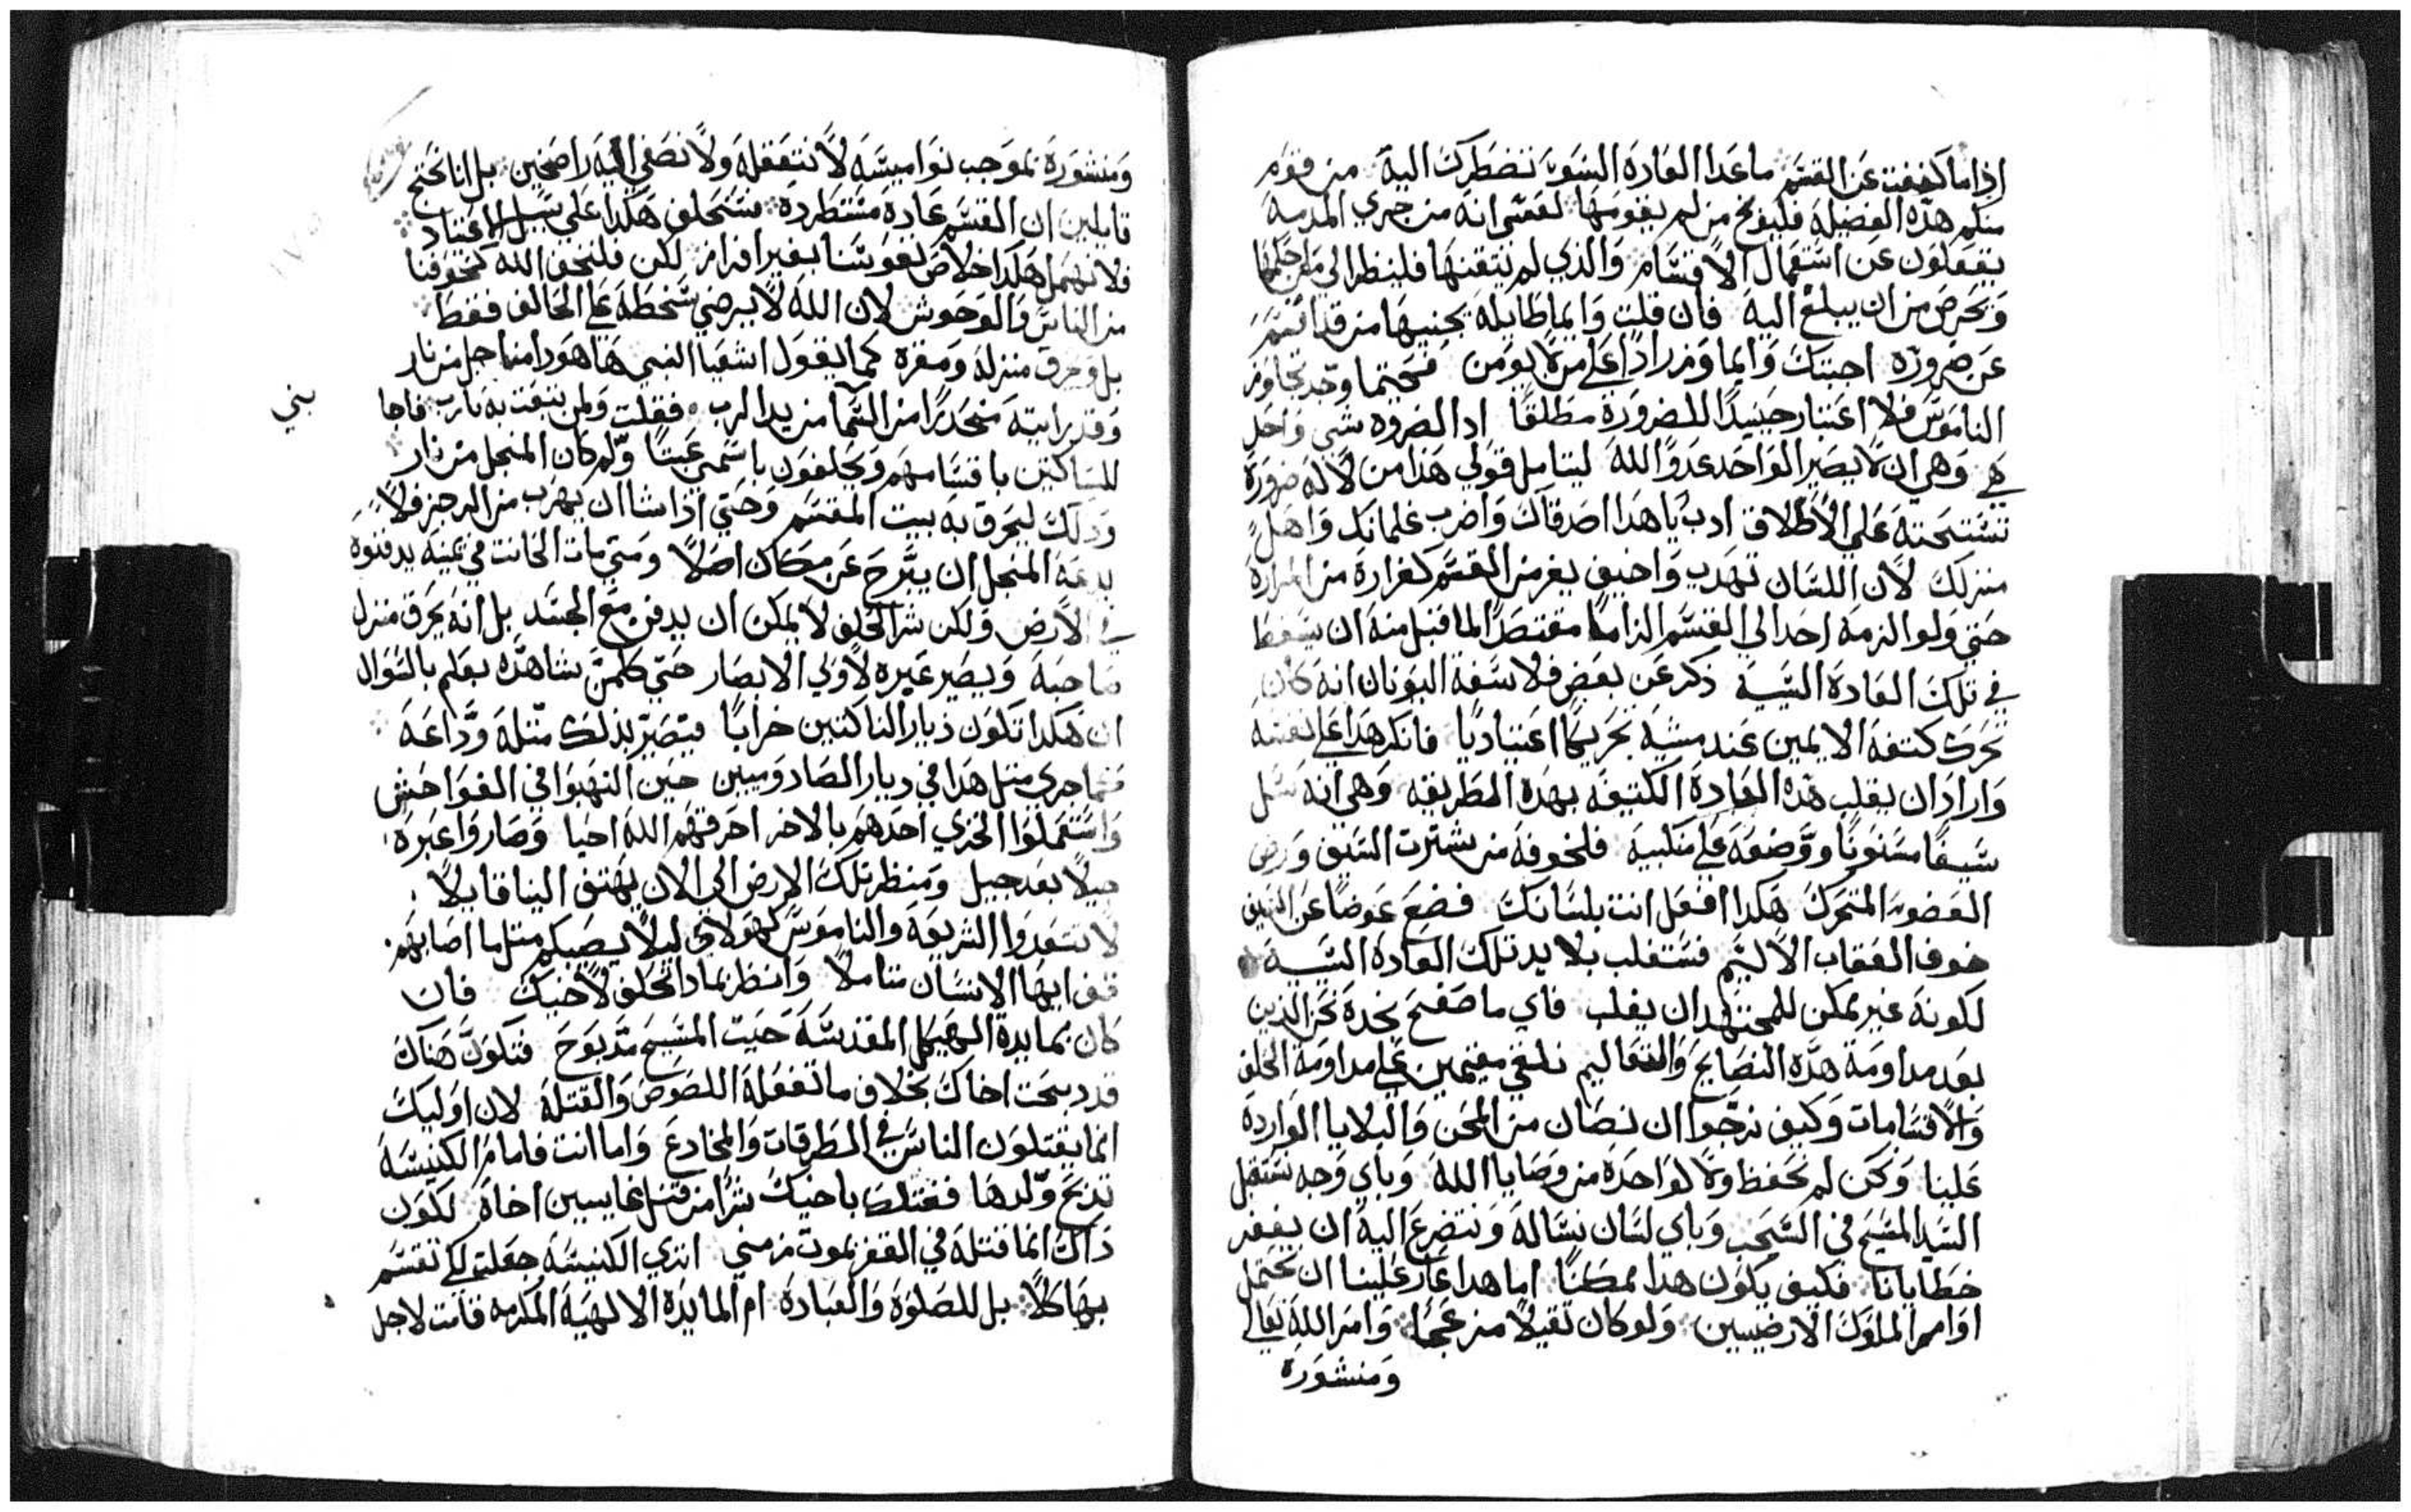 اذا ما كففت عن القسم ما عدا العادة السوء تضطرك اليه من قوم
منكم هذه الفضيلة فليفرح من لم يقومها لعمري انه من جري المدمة
يغفلون عن استعمال الاقسام والذي لم يتقنها فلينظر الي
ويحرص من ان يبلغ اليه فان قلت وايما طايلة يجنيها من قد اقسم
عن ضرورة اجبتك وايما ومن رادا علي من لا يومن فحيتما وجد تجاوز
الناموس فلا اعتبار حينيدا للضرورة مطلقا اد الضروه شي واحد
هي وهي ان لا يصير الواحد عدوا لله ليتامل قولي هذا من لا له ضرورة
تستحته علي الاطلاق ادب يا هدا اصدقاك واضرب غلمانك واهل
منزلك لان اللسان تهدب واخيف يفر من القسم كفراره من المرارة
حتي ولو الزمه احد الي القسم الزاما مقتصدا لما قبل منه ان يسقط
في تلك العادة السية ذكر عن بعض فلاسفة اليونان انه كان
يحرك كتفه الايمين عند مشيه تحريكا اعتياديا فانكر هدا علي نفسه
واراد ان يغلب هذه العادة الكتيفه بهده الطريقه وهي انه سل
سيفا مسنونا ووضعه علي منكبيه فلخوفه من يشترت السيف ورض
العضو المتحرك هكدا افعل انت بلسانك فضع عوضا عن السيف
خوف العقاب الاليم فستغلب بلا بد تلك العادة السية
لكونه غير ممكن للمجتهد ان يغلب فاي ما صفح نحده نحن الذين
بعد مداومة هذه النصايح والتعاليم نلفي مقيمين علي مداومة الحلف
والاقسامات وكيف نرجوا ان نصان من المحن والبلايا الواردة
علينا ونحن لم نحفظ ولا لواحدة من وصايا الله وباي وجه نستقبل
السيد المسيح في السحب وباي لسان نساله ونتضرع اليه ان يغفر
خطايانا فكيف يكون هدا ممكنا اما هدا عار علينا ان نحتمل
اوامر الملوك الارضيين ولو كان ثقيلا مزعجا وامر الله تعالي
ومنشورة
ومنشورة بموجب نواميسه لا نتعقله ولا نصغي اليه راضخين بل انا نحتج
قايلين ان القسم عادة مستطردة فستحلف هكدا علي سبيل الاعتياد
فلا نهمل هكدا خلاص نفوسنا بغير افراز لكن فلنخف الله كتخوفنا
من الناس والوحوش لان الله لا يرضي سخطه علي الحالف فقط
بل ويحرق منزله ومقره كما يقول اشعيا النبي ها هودا منجل من نار
وقد رايته منحدرا من السما من يدا الرب فقلت ولمن تبعت به يارب فاجا
بني
للساكتين باقسامهم ويحلفون باسمي عبتا ولم كان المنجل من نار
ودلك ليحرق به بيت المقسم وحتي اذا شا ان يهرب من الرجز فلا
يدعه المنجل ان يبرح عن مكان اصلا ومتي مات الحانت في يمينه يدفنوه
في الارض ولكن شر الحلف لا يمكن ان يدفن مع الجسد بل انه يحرق منزل
صاحبه ويصير عبره لاولي الابصار حتي كلمن شاهده يعلم بالسوال
ان هكدا تكون ديار الناكتين خرابا فيصير بذلك متله وداعه
فما جري متل هدا في ديار الصادوميين حين التهبوا في الفواحش
واستعملوا الخزي احدهم بالاخر احرقهم الله احيا وصاروا عبره
جيلا بعد جيل ومنظر تلك الارض الي الان يهتف الينا قايلا
لا تتعدوا الشريعة والناموس كهولاي ليلا يصيبكم متل ما اصابهم
قف ايها الانسان متاملا وانظر بمادا تحلف لاخيك فان
كان بمايدة الهيكل المقدسة حيت المسيح مدبوح فتكون هناك
قد دبحت اخاك بخلاف ما تفعله اللصوص والقتله لان اوليك
انما يقتلون الناس في الطرقات والمخادع واما انت فامام الكنيسه
تدبح ولدها فقتلك باخيك شرا من قتل غايسين اخاه لكون
داك انما قتله في القفر بموت زمني اتري الكنيسه جعلت لكي تقسم
بها كلا بل للصلوة والعبادة ام المايدة الالهية المكرمه قامت لاجل